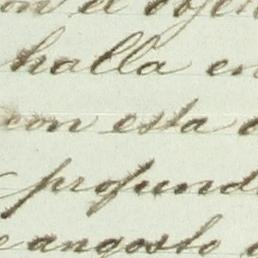 con el obje
halla en
con esta
profund
angosto